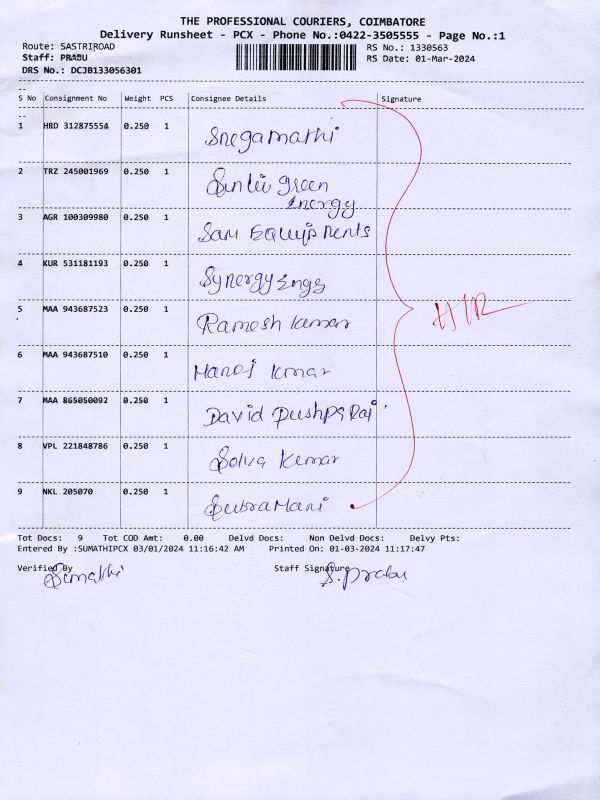 THE PROFESSIONAL COURIERS, COIMBATORE
Delivery Runsheet - PCX - Phone No.:0422-3505555 - Page No.:1
Route: SASTRIROAD RS No.: 1330563
Staff: PRABU RS Date: 01-Mar-2024
DRS No.: DCJB133056301
S No Consignment No Weight PCS Consignee Details Signature
1 HRD 312875554 0.250 1 Snegamathi
2 TRZ 245001969 0.250 1 green
energy
3 AGR 100309980 0.250 1 Sam Equipments
4 KUR 531181193 0.250 1 Synergy Engg
5 MAA 943687523 0.250 1 Ramesh kumar
H/R
6 MAA 943687510 0.250 1 Manoj kmar
7 MAA 865050092 0.250 1 David pushparaj
8 VPL 221848786 0.250 1 Selva kumar
9 NKL 205070 0.250 1 Subramani
Tot Docs: 9 Tot COD Amt: 0.00 Delvd Docs: Non Delvd Docs: Delvy Pts:
Entered By :SUMATHIPCX 03/01/2024 11:16:42 AM Printed On: 01-03-2024 11:17:47
Verified By Staff Signature
Sumathi S. Prabu